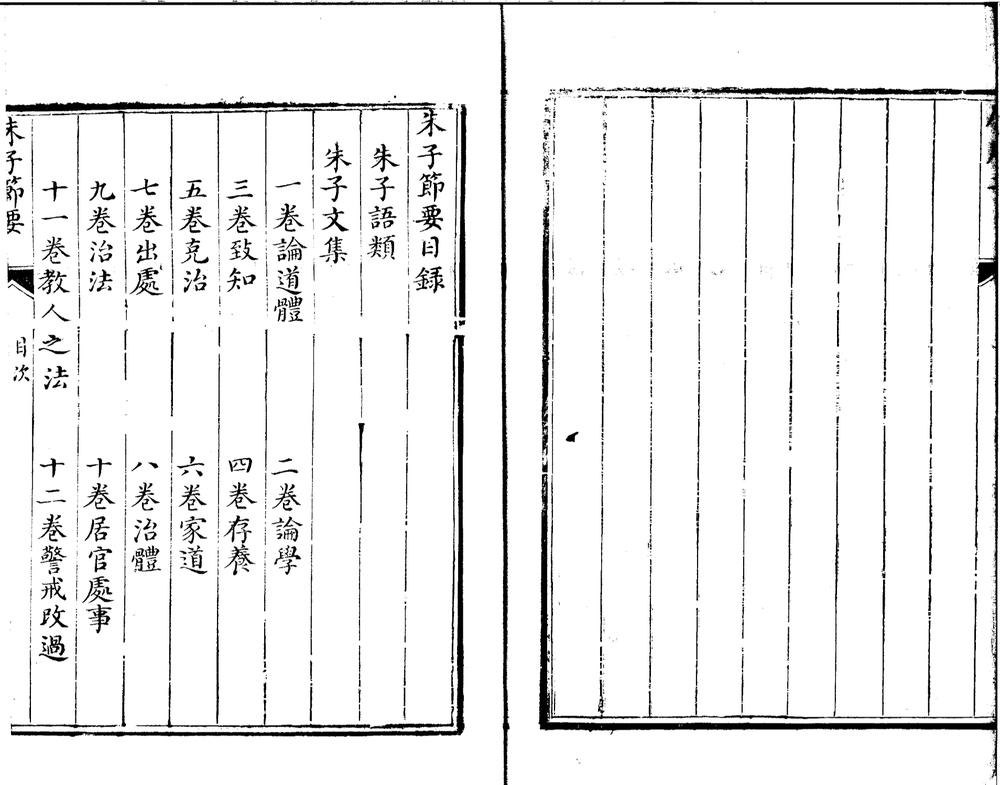 朱子節要目録
朱子語類
朱子文集
一卷論道體
二卷論學
三卷致知
四卷存養
五卷克治
六卷家道
七卷出處
八卷治體
九卷治法
十卷居官處事
十一卷教人之法
十二卷警戒改過
朱子節要
目次